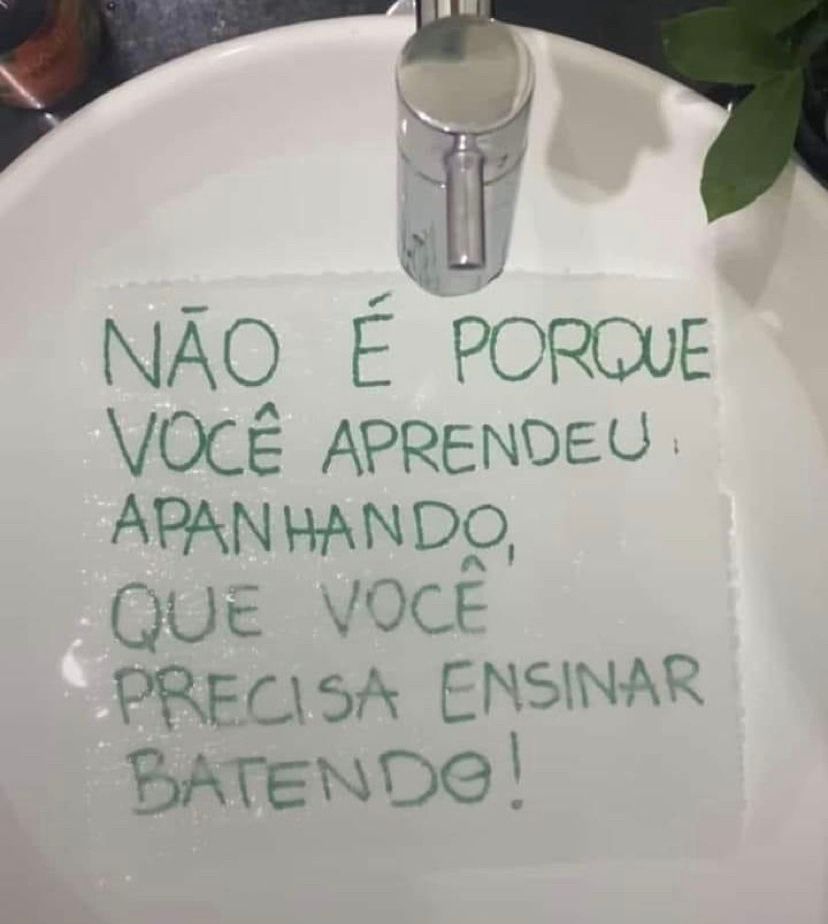 NÃO É PORQUE
VOCÊ APRENDEU
APANHANDO,
QUE VOCÊ
PRECISA ENSINAR
BATENDO!